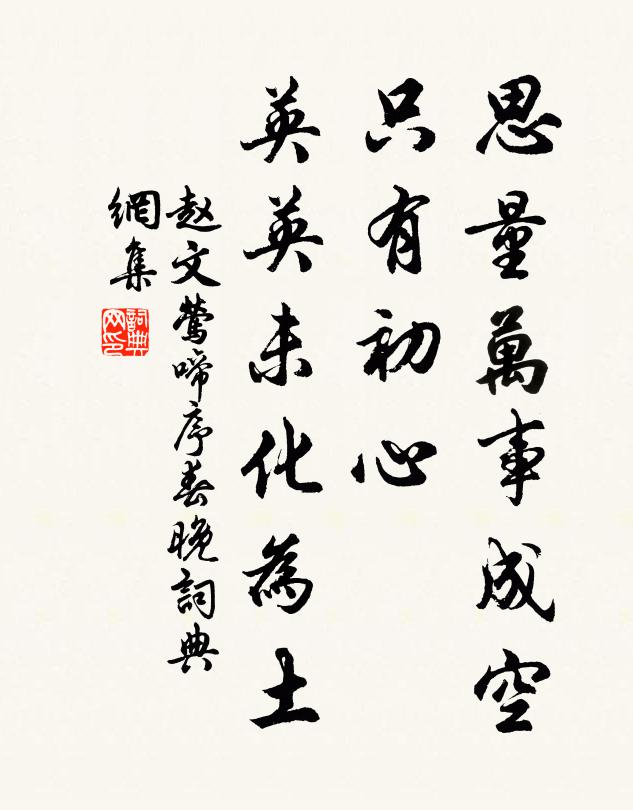 思量萬事成空
只有初心
英英未化為土
赵文鶯啼序春晚詞典
網集
詞典
网印